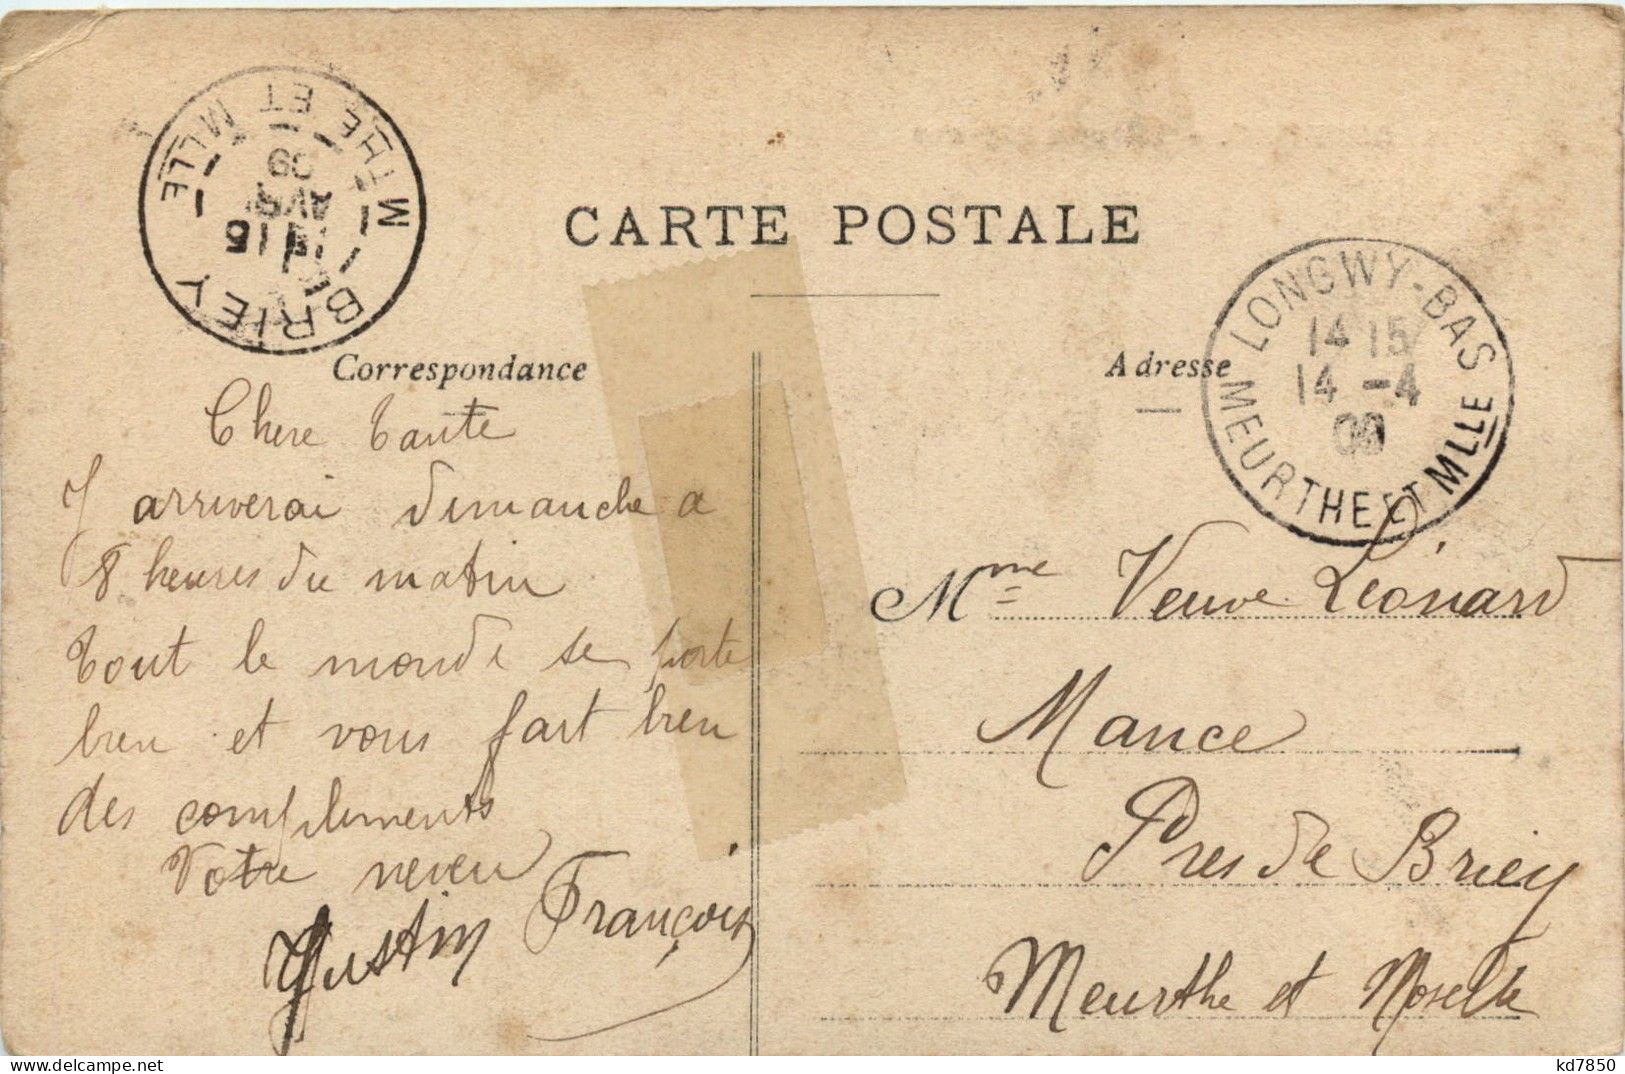 CARTE POSTALE
BRIEY
MTHE ET MLLE
15
AVR
09
LONGWY-BAS
14 15
14 -4
MEURTHE ET MLLE
Correspondance
Chere Tante
J arriverai dimanche a
8 heures du matin
Tout le monde se porte
bien et vous fait bien
des compliments
Votre neveu
Justin François
Adresse
Mme Veuve Léonard
Mance
Pres de Briey
Meurthe et Moselle
delcampe.net
kd7850